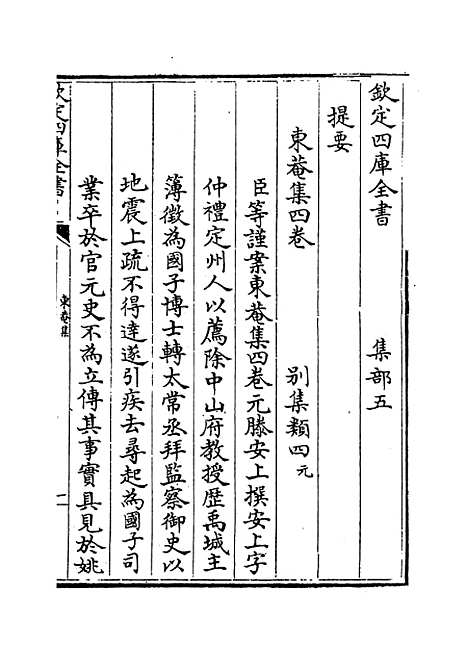 欽定四庫全書　集部五
提要
東菴集四卷　别集類四元
臣等謹案東菴集四卷元滕安上撰安上字
仲禮定州人以薦除中山府教授歴禹城主
簿徴為國子博士轉太常丞拜監察御史以
地震上疏不得逹遂引疾去尋起為國子司
業卒於官元史不為立傳其事實具見於姚
欽定四庫全書
東菴集
一